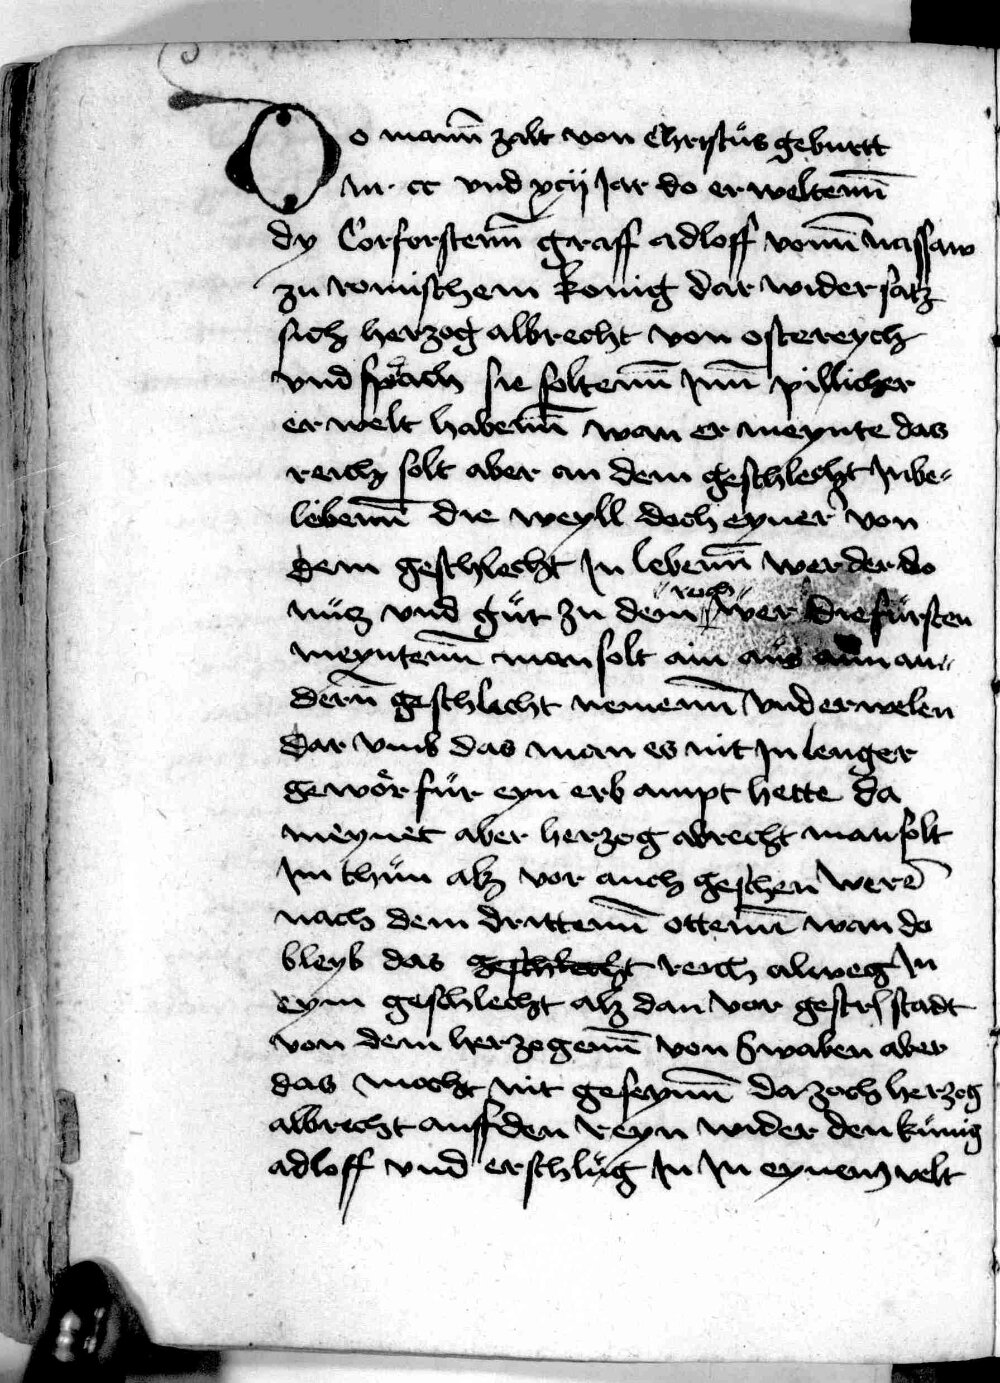 Do mann zalt von Christus geburtt
M cc vnd xcij Jar do erweltenn
dy Corforstenn graff adloff vonn nassaw
zu romischem konig dar wider satz
sich herzog albrecht von ostereych
vnd sprach sie soltenn Jnn pillicher
erwelt habenn wan er meynte das
reich solt aber an dem geschlecht Inbe-
lebenn die weyll doch eyner von
dem geschlecht In lebenn wer der do
nutz vnd gut zu dem reich wer die fursten
meyntenn man solt ain aus ainn an-
dern geschlecht nemenn vnd erwelen
Dar vmb das man es nit In lenger
gewor fur eyn erb ampt hette da
meynet aber herzog abrecht man solt
Im thun alz vor auch geschen were
nach dem drittenn ottenn wan do
bleyb das geschlecht reich alweg In
eym geschlecht alz dan vor stadt
von dem herzogenn von swaben aber
das mocht nit geseynn da zoch herzog
albrecht auff den reyn wider den kunig
adloff vnd erschlug In In eynem velt